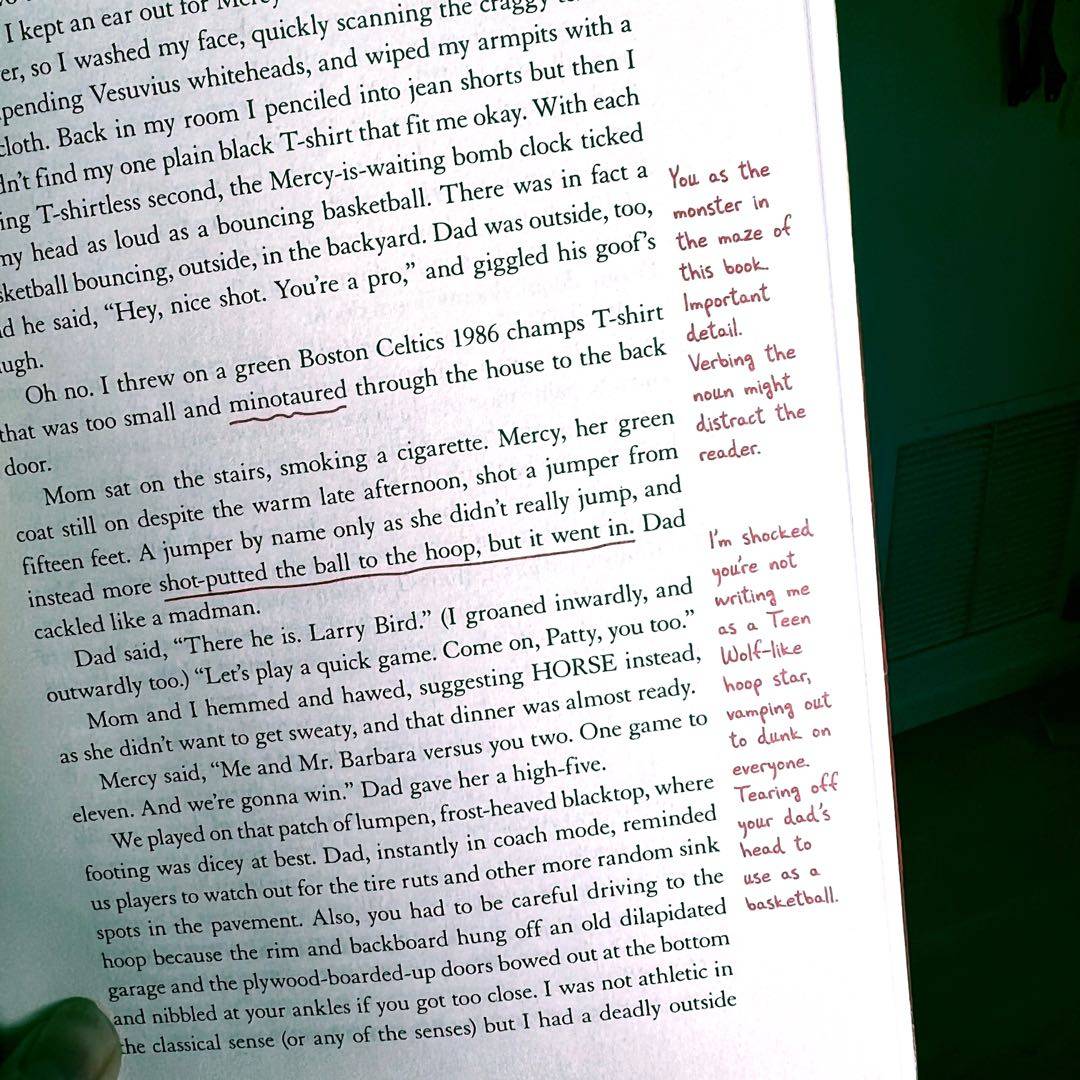 I kept an ear out for
er, so I washed my face, quickly scanning the craggy
pending Vesuvius whiteheads, and wiped my armpits with a
cloth. Back in my room I penciled into jean shorts but then I
dn't find my one plain black T-shirt that fit me okay. With each
ing T-shirtless second, the Mercy-is-waiting bomb clock ticked
my head as loud as a bouncing basketball. There was in fact a
sketball bouncing, outside, in the backyard. Dad was outside, too,
d he said, “Hey, nice shot. You're a pro,” and giggled his goof's
ugh.
Oh no. I threw on a green Boston Celtics 1986 champs T-shirt
that was too small and minotaured through the house to the back
door.
Mom sat on the stairs, smoking a cigarette. Mercy, her green
coat still on despite the warm late afternoon, shot a jumper from
fifteen feet. A jumper by name only as she didn't really jump, and
instead more shot-putted the ball to the hoop, but it went in. Dad
cackled like a madman.
Dad said, “There he is. Larry Bird.” (I groaned inwardly, and
outwardly too.) “Let's play a quick game. Come on, Patty, you too.”
Mom and I hemmed and hawed, suggesting HORSE instead,
as she didn't want to get sweaty, and that dinner was almost ready.
Mercy said, “Me and Mr. Barbara versus you two. One game to
eleven. And we're gonna win.” Dad gave her a high-five.
We played on that patch of lumpen, frost-heaved blacktop, where
footing was dicey at best. Dad, instantly in coach mode, reminded
us players to watch out for the tire ruts and other more random sink
spots in the pavement. Also, you had to be careful driving to the
hoop because the rim and backboard hung off an old dilapidated
garage and the plywood-boarded-up doors bowed out at the bottom
and nibbled at your ankles if you got too close. I was not athletic in
the classical sense (or any of the senses) but I had a deadly outside
You as the
monster in
the maze of
this book.
Important
detail.
Verbing the
noun might
distract the
reader.
I'm shocked
you're not
writing me
as a Teen
Wolf-like
hoop star,
vamping out
to dunk on
everyone.
Tearing off
your dad's
head to
use as a
basketball.